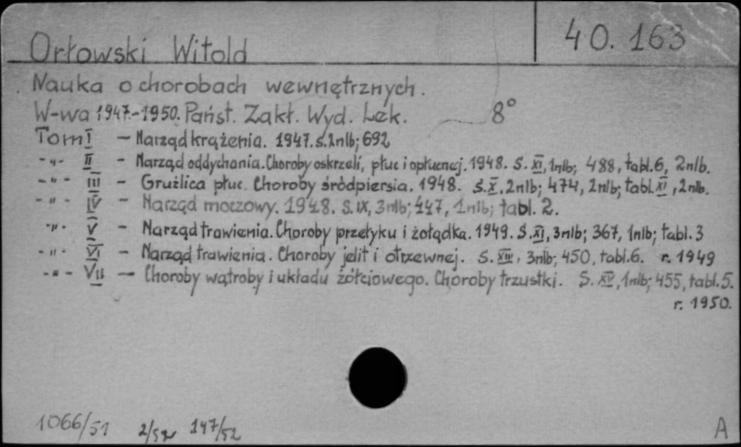 Orłowski Witold
40. 163
Nauka o chorobach wewnętrznych.
W-wa 1947-1950. Państ. Zakł. Wyd. Lek. 8°
Tom I – Narząd krążenia. 1947. s. 2nlb; 692
-"- II – Narząd oddychania. Choroby oskrzeli, płuc i opłucnej. 1948. S. XI, 1nlb; 488, tabl. 6, 2nlb.
-"- III – Gruźlica płuc. Choroby śródpiersia. 1948. s. X, 2nlb; 474, 2nlb; tabl. XI, 2nlb.
-"- IV – Narząd moczowy. 1948. S. IX, 3nlb; 447, 1nlb; tabl 2.
-"- V – Narząd trawienia. Choroby przełyku i żołądka. 1949. S. XI, 3nlb; 367, 1nlb; tabl. 3
-"- VI – Narząd trawienia. Choroby jelit i otrzewnej. S. VIII, 3nlb; 450, tabl. 6. r. 1949
-"- VII – Choroby wątroby i układu żółciowego. Choroby trzustki. S. XV, 1nlb; 455, tabl. 5.
r. 1950.
1066/51 2/52 147/52 A